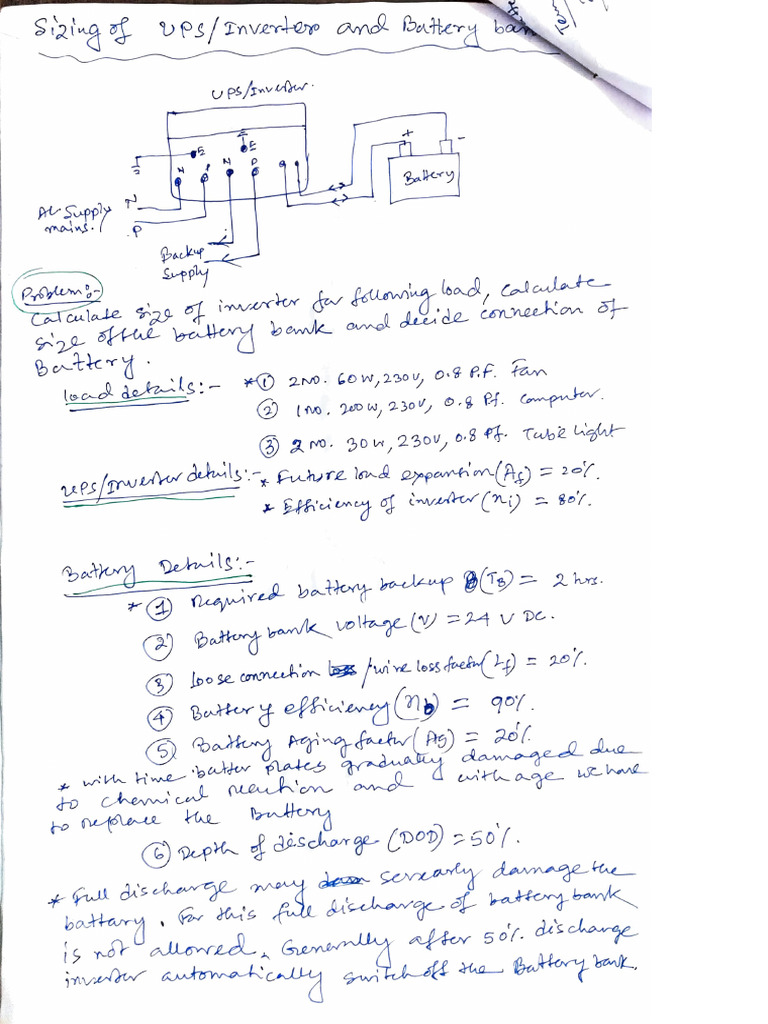 Sizing of UPS/Inverter and Battery ban
UPS/Inverter.
E
E
N
P
N
P
+
-
Battery
AC Supply
mains.
N
P
Backup
Supply
Problem:-
Calculate size of inverter for following load, calculate
size of the battery bank and decide connection of
Battery.
load details:- * ① 2 NO. 60W, 230V, 0.8 P.F. Fan
② 1 NO. 200W, 230V, 0.8 Pf. Computer.
③ 2 NO. 30W, 230V, 0.8 Pf. Tube Light
UPS/Inverter details:- * Future load expantion (Af) = 20%.
* Efficiency of inverter (ni) = 80%.
Battery Details:-
* ① Required battery backup (TB) = 2 hrs.
② Battery bank voltage (V) = 24 V DC.
③ loose connection /wire loss factor (Lf) = 20%.
④ Battery efficiency (nb) = 90%.
⑤ Battery Aging factor (Ag) = 20%.
* with time batter plates gradually damaged due
to chemical reaction and with age we have
to replace the Battery
⑥ Depth of discharge (DOD) = 50%.
* Full discharge may sevearly damage the
battary. For this full discharge of battery bank
is not allowed. Generally after 50% discharge
inverter automatically switch off the Battery bank.